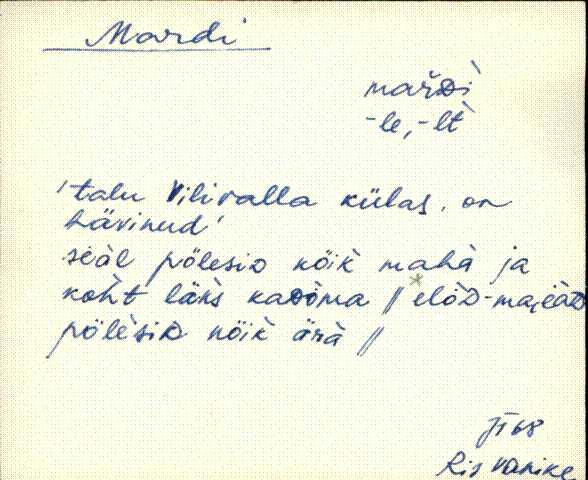 Mardi
mar̆Dì
-le, -lt
'talu Vilivalla külas, on
hävinud'
seàl põlesiD kõik̀ mahà ja
koht̀ läks kaDòma // elòD-majaD
põlèsiD kõik̀ ärà //
JT 68
Ris Vanike